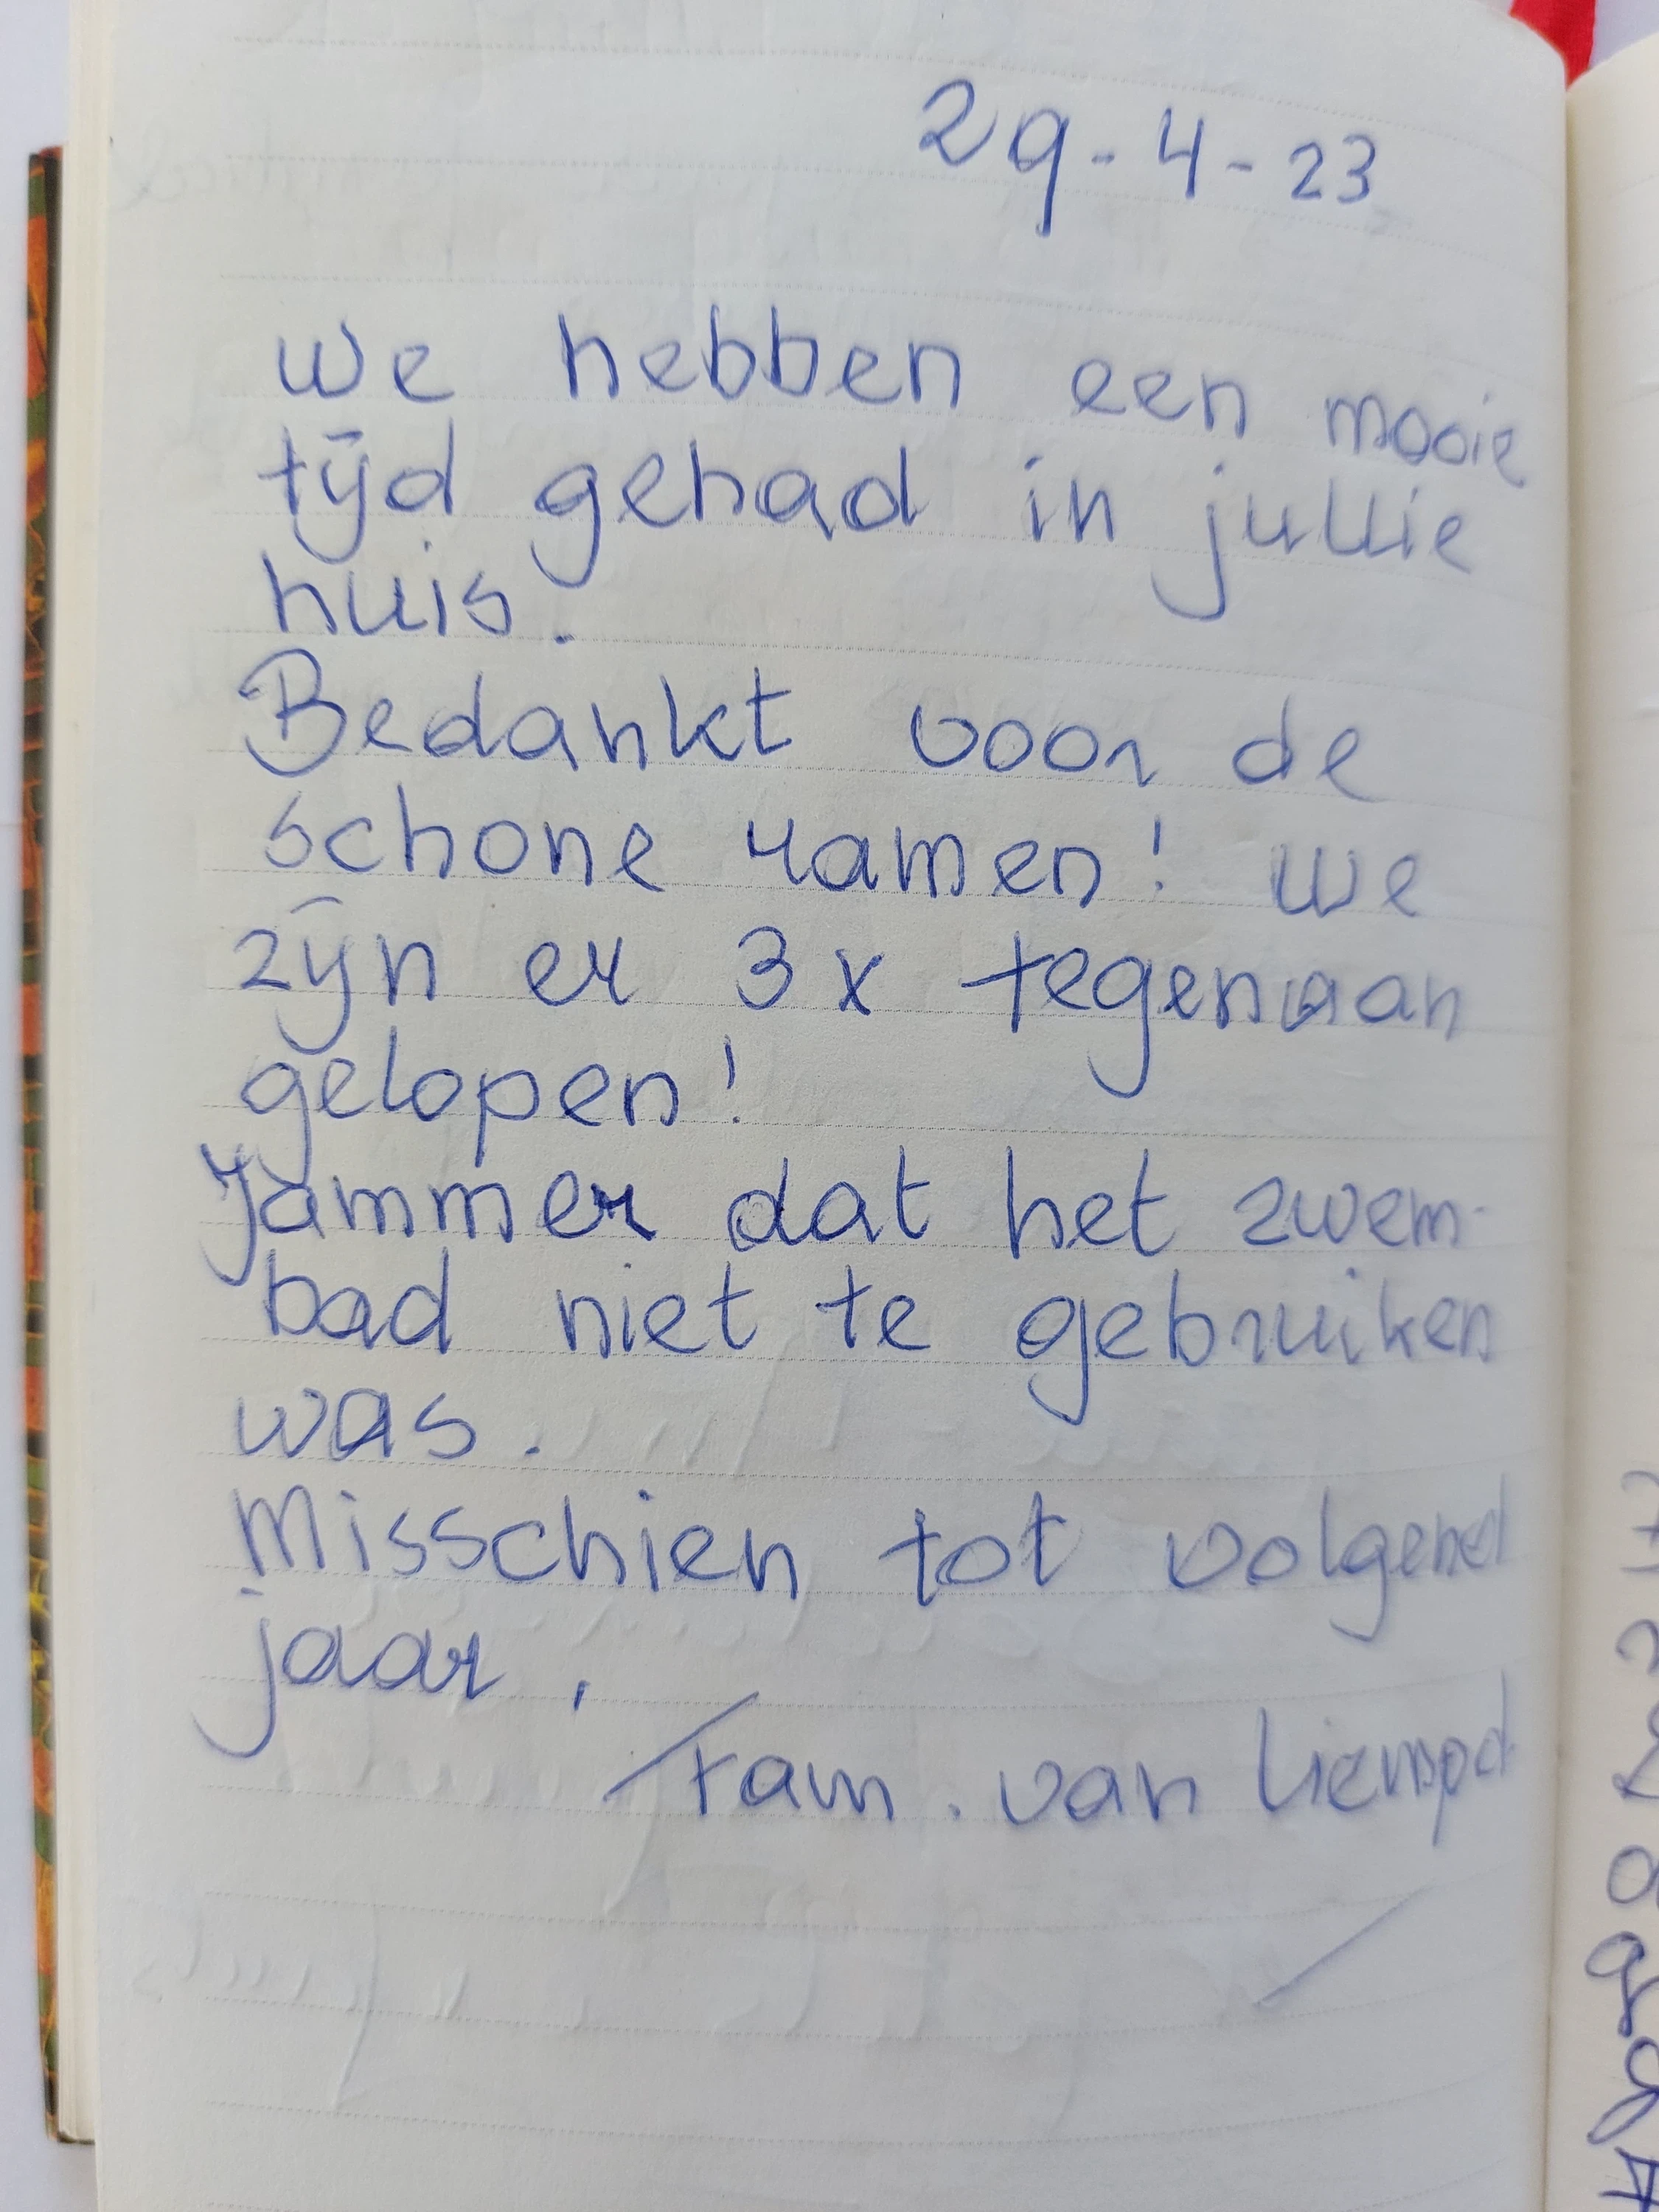 29-4-23
We hebben een mooie
tijd gehad in jullie
huis.
Bedankt voor de
schone ramen! We
zijn er 3x tegenaan
gelopen!
Jammer dat het zwem-
bad niet te gebruiken
was.
Misschien tot volgend
jaar.
Fam. van Liempd